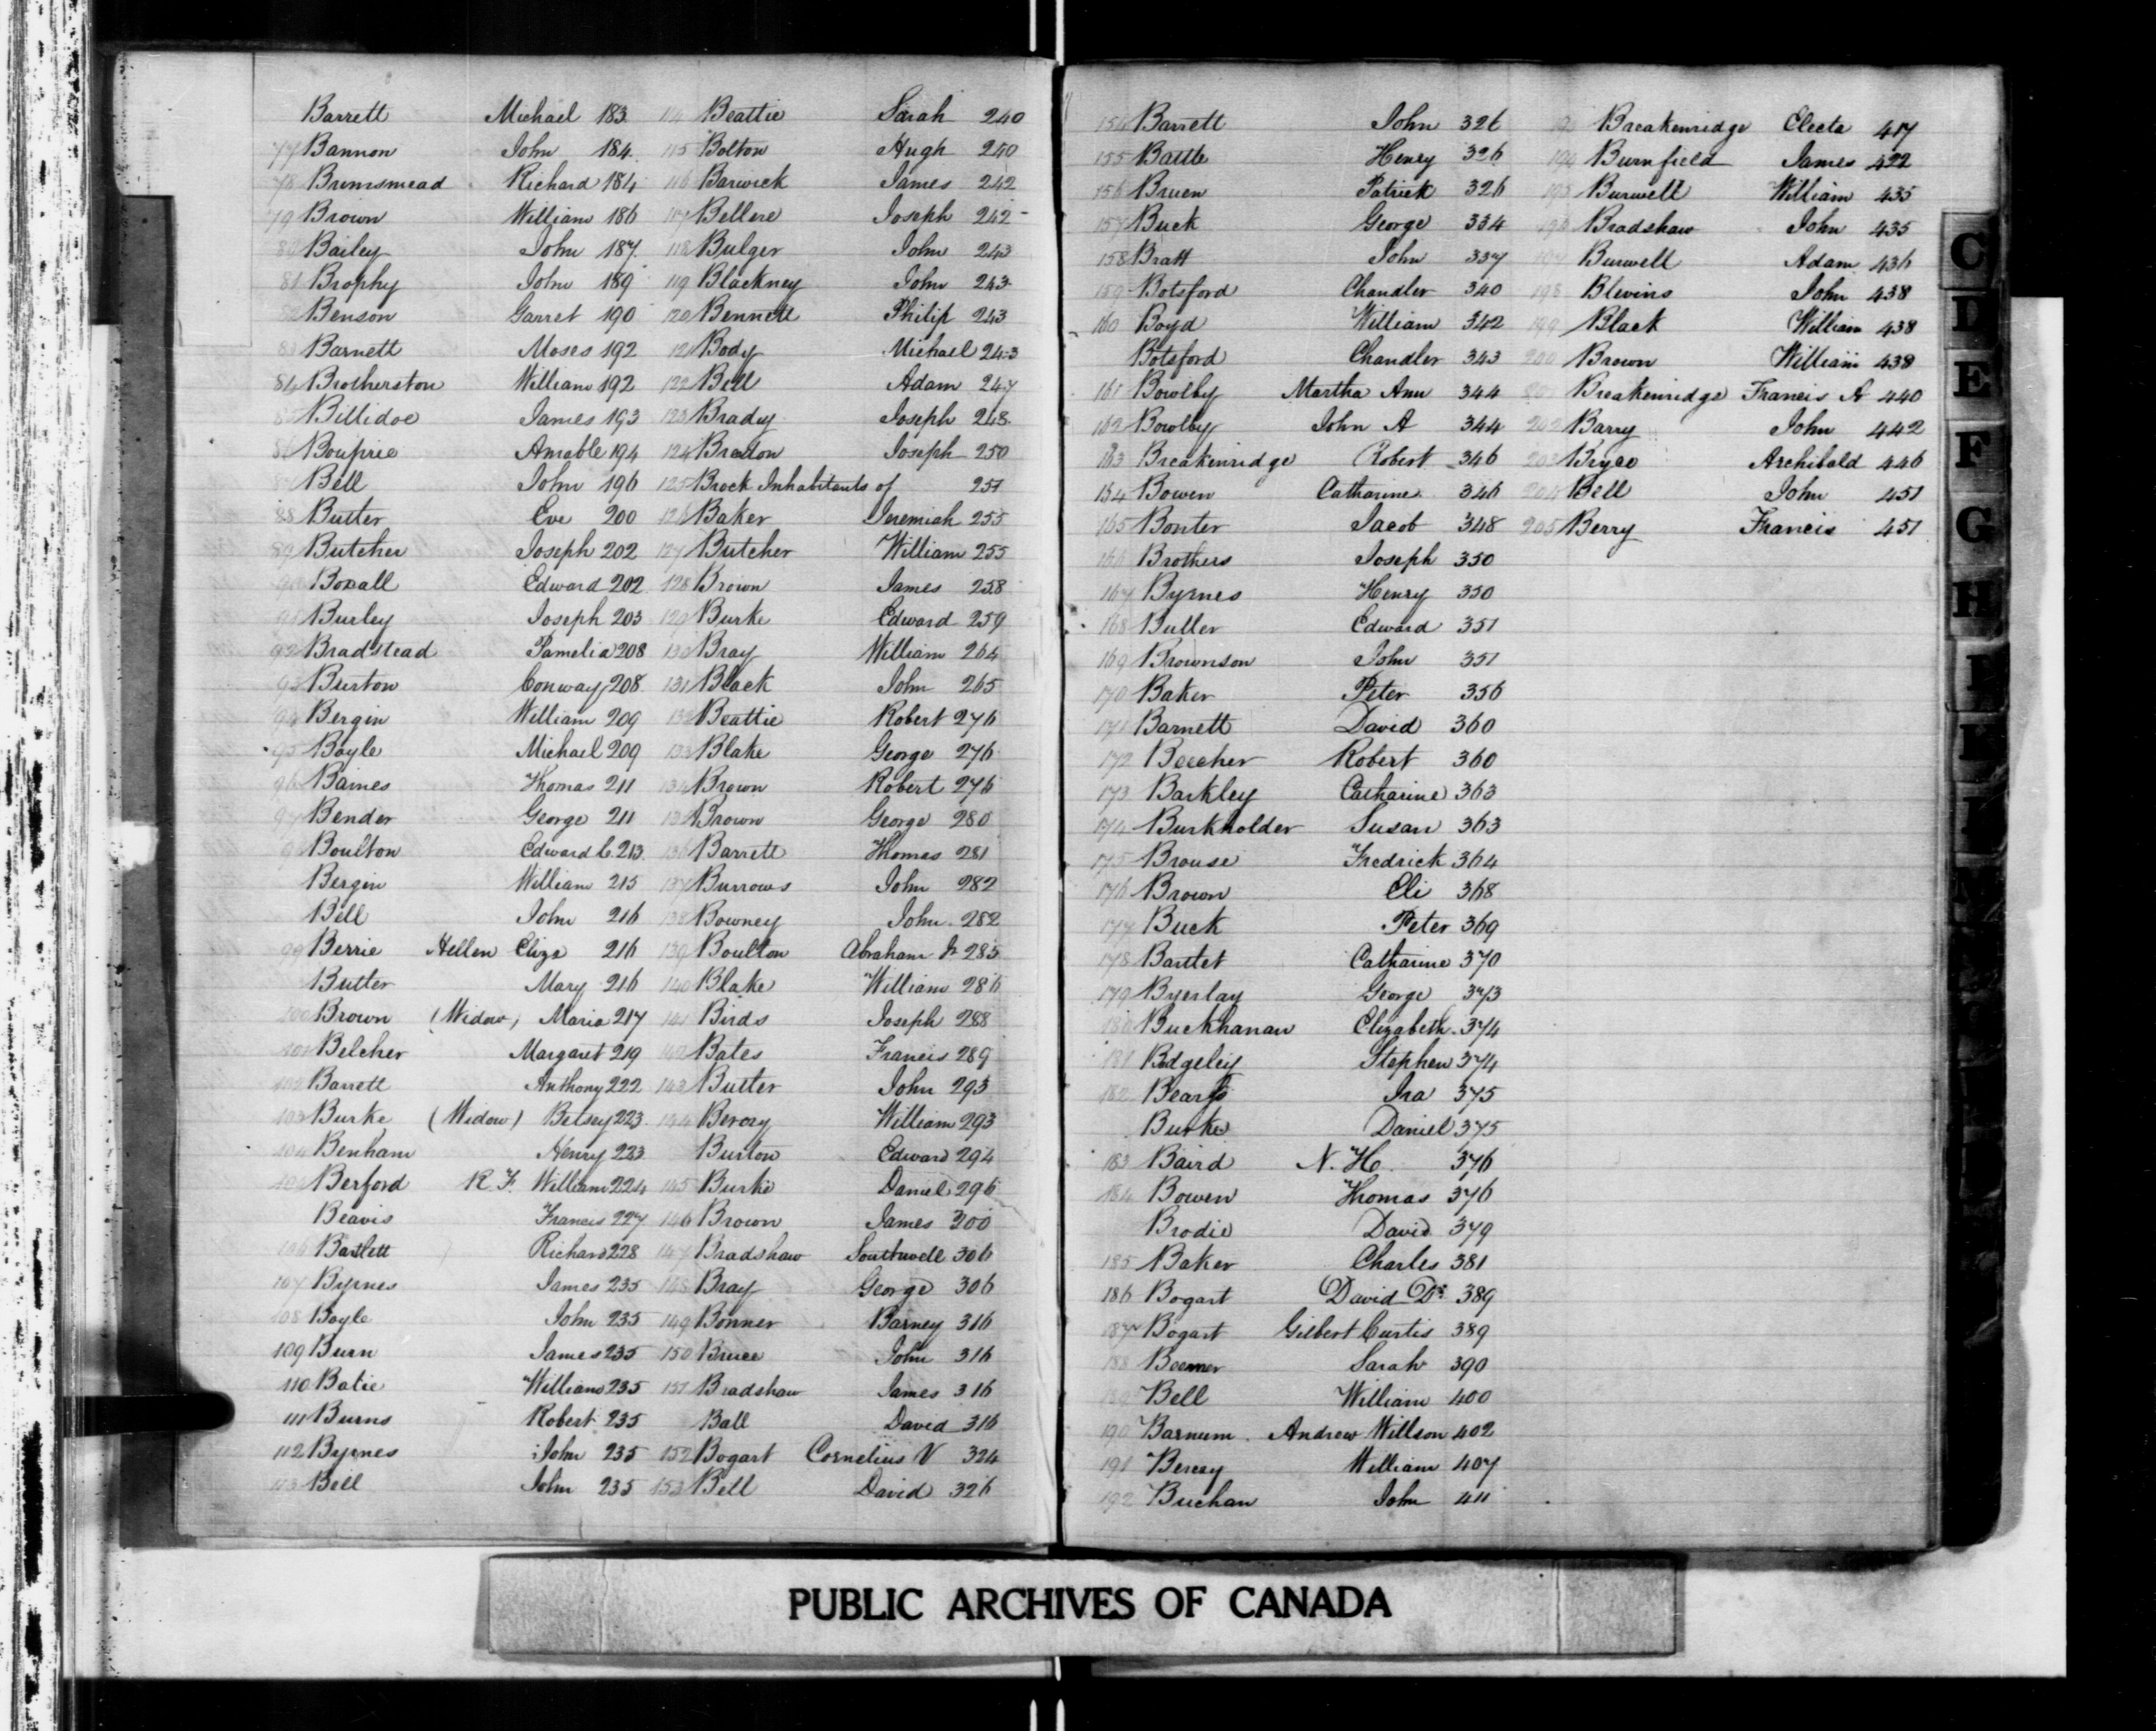 Barrett Michael 183
77 Bannon John 184
78 Brimsmead Richard 184
79 Brown William 186
80 Bailey John 187
81 Brophy John 189
82 Benson Garret 190
83 Barnett Moses 192
84 Brotherston William 192
85 Billidoe James 193
86 Amable 194
87 Bell John 196
88 Butler Eve 200
89 Butcher Joseph 202
90 Boxall Edward 202
91 Burley Joseph 203
92 Bradstead Pamelia 208
93 Burton Conway 208
94 Bergin William 209
95 Boyle Michael 209
96 Baines Thomas 211
97 Bender George 211
98 Boulton Edward C. 213
Bergin William 215
Bell John 216
99 Berrie Hellen Eliza 216
Butler Mary 216
100 Brown (Widow) Maria 217
101 Belcher Margaret 219
102 Barrett Anthony 222
103 Burke (Widow) Betsey 223
104 Benham Henry 223
105 Berford R. F. William 224
Beavis Francis 227
106 Bartlett Richard 228
107 Byrnes James 235
108 Boyle John 235
109 Burn James 235
110 Batie William 235
111 Burns Robert 235
112 Byrnes John 235
113 Bell John 235
114 Beattie Sarah 240
115 Bolton Hugh 240
116 Barwick James 242
117 Bellere Joseph 242
118 Bulger John 243
119 Blackney John 243
120 Bennett Philip 243
121 Body Michael 243
122 Bell Adam 247
123 Brady Joseph 248
124 Breslon Joseph 250
125 Brock Inhabitants of 251
126 Baker Jeremiah 255
127 Butcher William 255
128 Brown James 258
129 Burke Edward 259
130 Bray William 264
131 Black John 265
132 Beattie Robert 276
133 Blake George 276
134 Brown Robert 276
135 Brown George 280
136 Barrett Thomas 281
137 Burrows John 282
138 Bowney John 282
139 Boulton Abraham Jr 285
140 Blake William 286
141 Birds Joseph 288
142 Bates Francis 289
143 Butler John 293
144 Berczy William 293
Burton Edward 294
145 Burke Daniel 296
146 Brown James 300
147 Bradshaw Southwell 306
148 Bray George 306
149 Bonner Barney 316
150 Bruce John 316
151 Bradshaw James 316
Ball David 316
152 Bogart Cornelius V 324
153 Bell David 326
154 Barrett John 326
155 Battle Henry 326
156 Bruen Patrick 326
157 Buck George 334
158 Bratt John 337
159 Botsford Chandler 340
160 Boyd William 342
Botsford Chandler 343
161 Bowlby Martha Ann 344
162 Bowlby John A 344
163 Breakenridge Robert 346
164 Bowen Catharine 346
165 Bonter Jacob 348
166 Brothers Joseph 350
167 Byrnes Henry 350
168 Butler Edward 351
169 Brownson John 351
170 Baker Peter 356
171 Barnett David 360
172 Beecher Robert 360
173 Barkley Catharine 363
174 Burkholder Susan 363
175 Brouse Fredrick 364
176 Brown Eli 368
177 Buck Peter 369
178 Bartlet Catharine 370
179 Byerlay George 373
180 Buckhanan Elizabeth 374
181 Badgeley Stephen 374
182 Bearss Ira 375
Burke Daniel 375
183 Baird N. H. 376
184 Bowen Thomas 376
Brodie David 379
185 Baker Charles 381
186 Bogart David Dr 389
187 Bogart Gilbert Curtis 389
188 Beemer Sarah 390
189 Bell William 400
190 Barnum Andrew Willson 402
191 Berczy William 407
192 Buchan John 411
193 Breakenridge Electa 417
194 Burnfield James 422
195 Burwell William 435
196 Bradshaw John 435
197 Burwell Adam 436
198 Blevins John 438
199 Black William 438
200 Brown William 438
201 Breakenridge Francis A 440
202 Barry John 442
203 Bryce Archibald 446
204 Bell John 451
205 Berry Francis 451
C
D
E
F
G
H
I
PUBLIC ARCHIVES OF CANADA